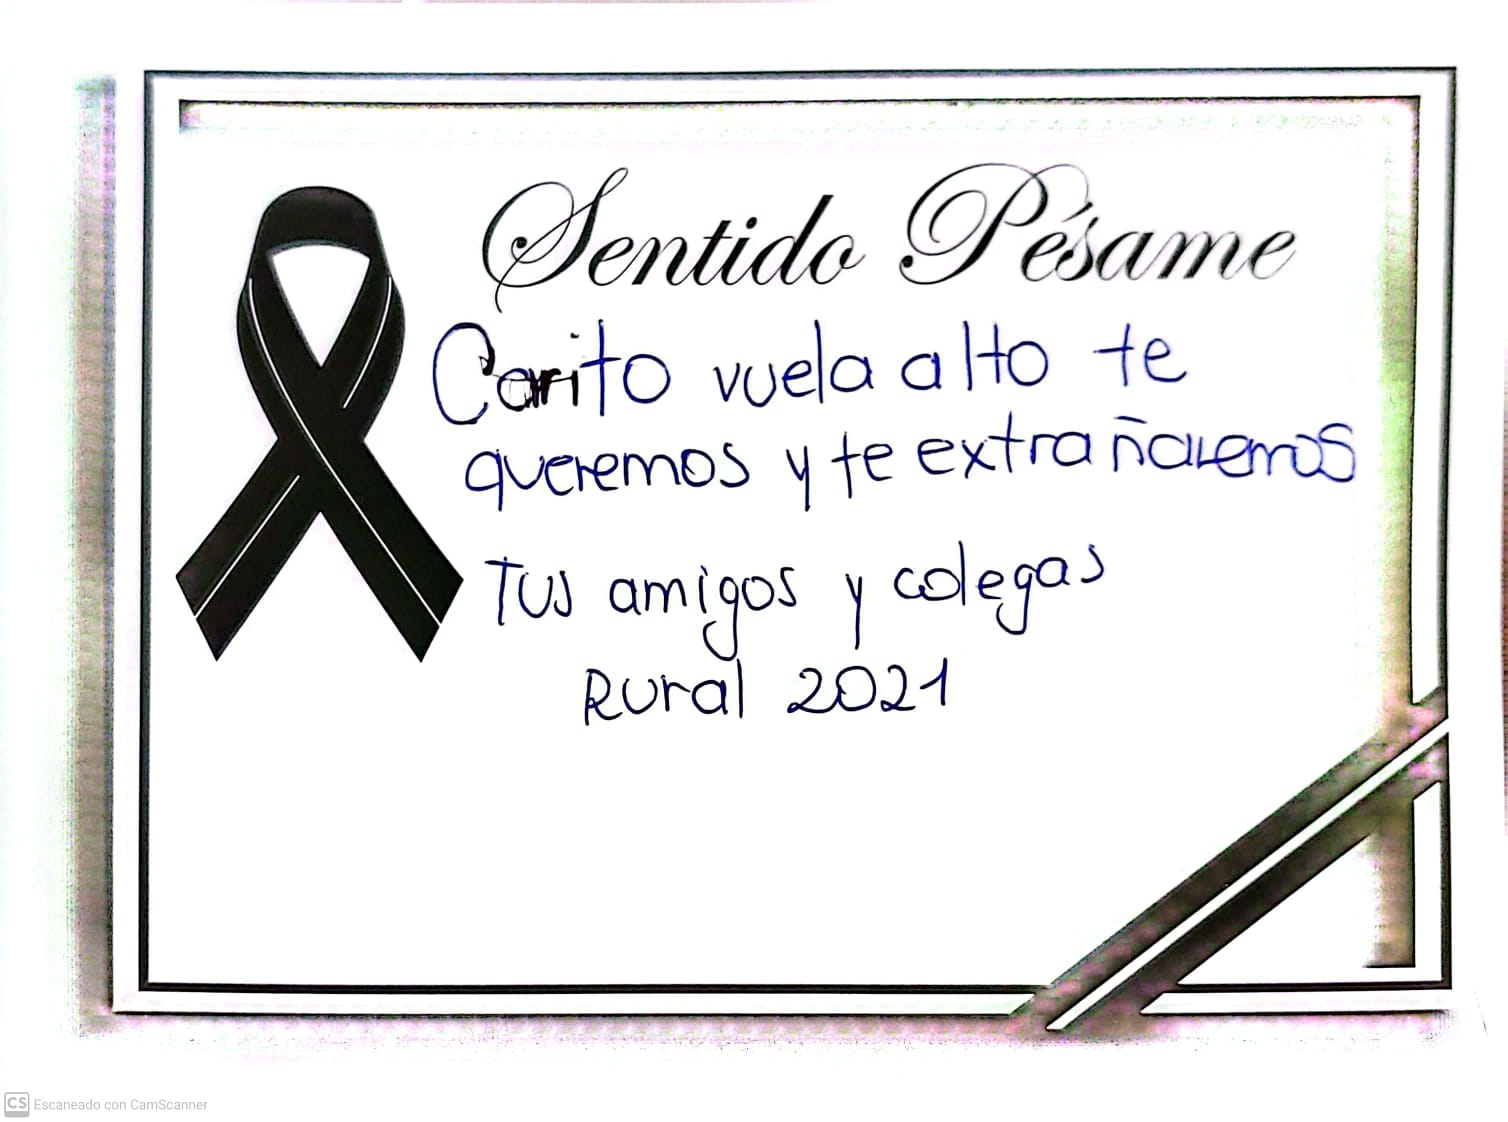 Sentido Pésame
Carito vuela alto te
queremos y te extrañaremos
Tus amigos y colegas
Rural 2021
CS Escaneado con CamScanner